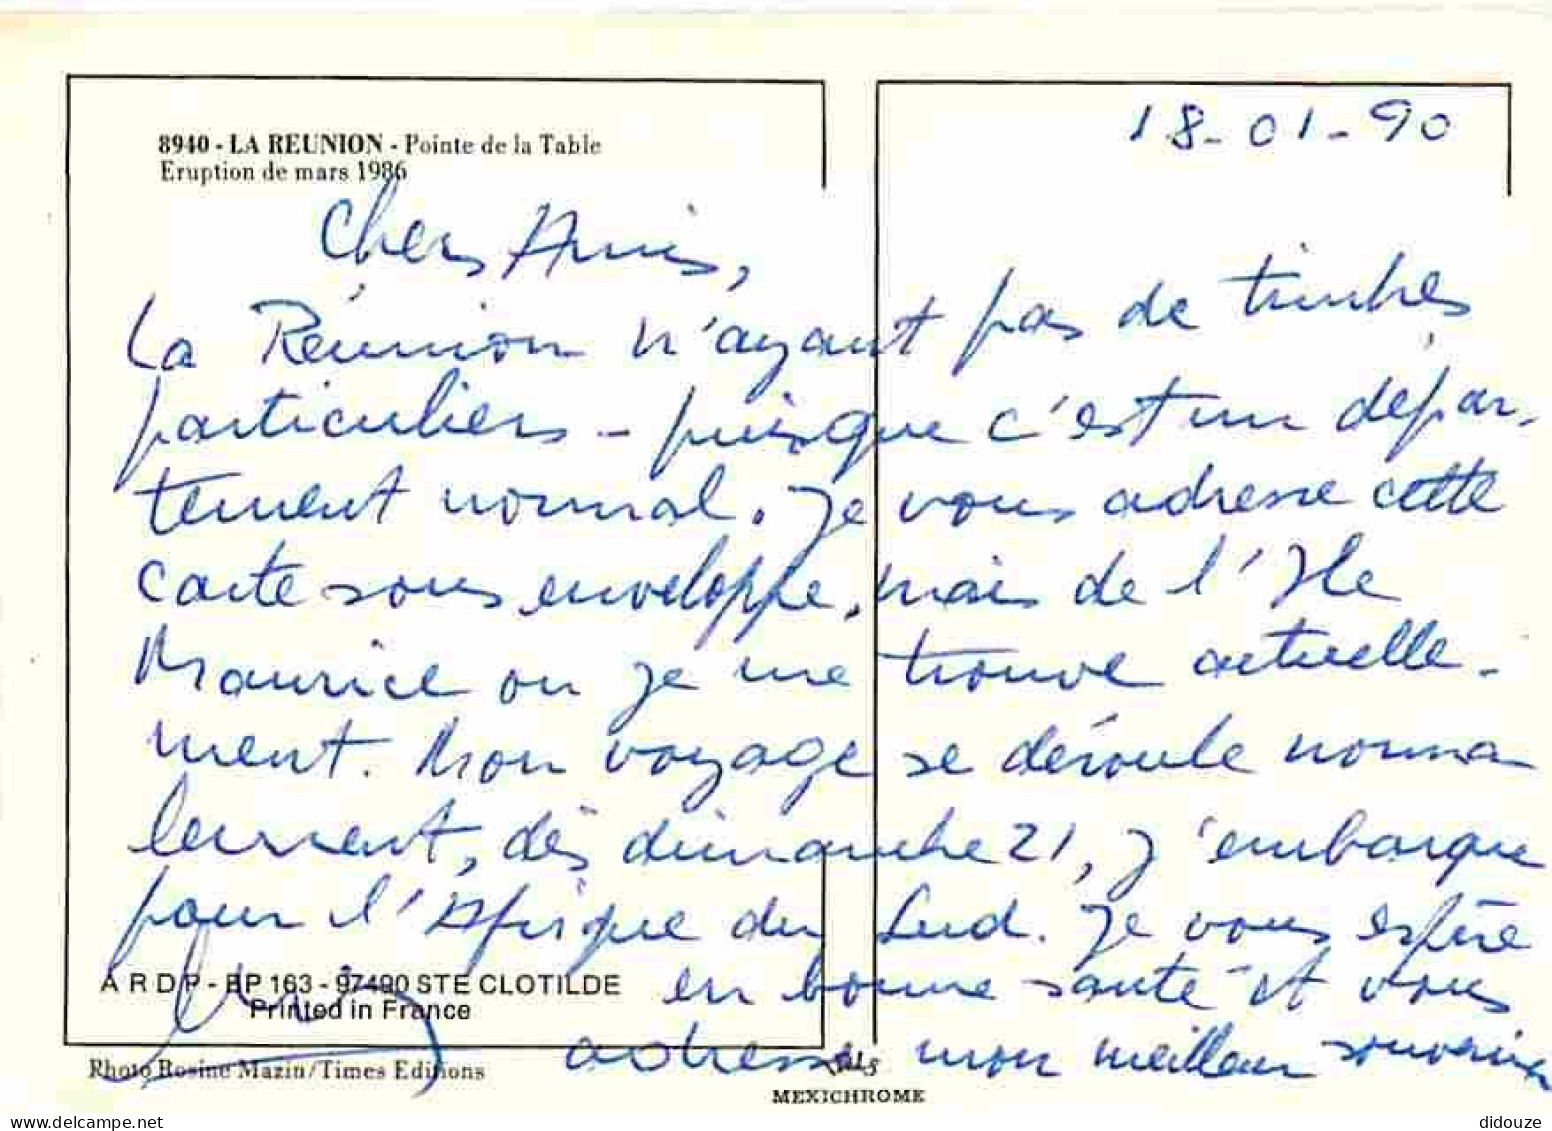 18-01-90
8940 - LA REUNION - Pointe de la Table
Eruption de mars 1986
Chers Amis,
La Réunion n'ayant pas de timbres
particuliers - puisque c'est un dépar-
tement normal. Je vous adresse cette
carte sous enveloppe, mais de l'Ile
Maurice ou je me trouve actuelle-
ment. Mon voyage se déroule norma
lement, dès dimanche 21, j'embarque
pour l'Afrique du Sud. Je vous espère
en bonne santé et vous
adresse mon meilleur souvenir
A R D P - BP 163 - 97490 STE CLOTILDE
Printed in France
Photo Rosine Mazin/Times Editions
MEXICHROME
didouze
delcampe.net